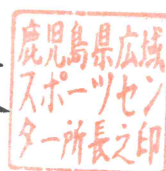 鹿児島県広域
スポーツセン
ター所長之印